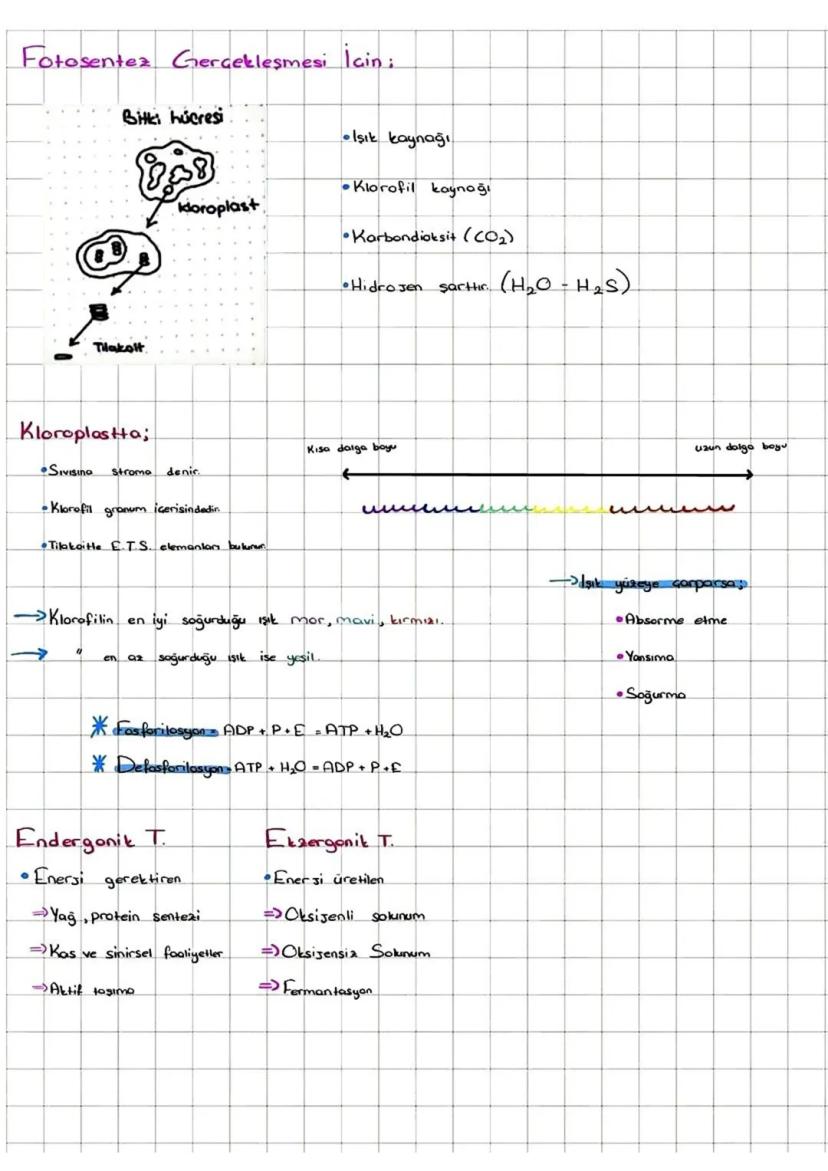 Fotosentez Gerçekleşmesi İçin;
Bitki hücresi
kloroplast
Tilakoit
•Işık kaynağı
•Klorofil kaynağı
•Karbondioksit (CO₂)
•Hidrojen şarttır. (H₂O - H₂S)
Kloroplastta;
•Sıvısına stroma denir.
•Klorofil granum içerisindedir.
•Tilakoitte E.T.S. elemanları bulunur.
Kısa dalga boyu
Uzun dalga boyu
→Işık yüzeye çarparsa;
•Absorme etme
•Yansıma
•Soğurma
→Klorofilin en iyi soğurduğu ışık mor, mavi, kırmızı.
→ " en az soğurduğu ışık ise yeşil.
* Fosforilasyon= ADP + P + E = ATP + H₂O
* Defosforilasyon= ATP + H₂O = ADP + P + E
Endergonik T.
•Enerji gerektiren
⇒Yağ, protein sentezi
⇒Kas ve sinirsel faaliyetler
⇒Aktif taşıma
Ekzergonik T.
•Enerji üretilen
⇒Oksijenli solunum
⇒Oksijensiz Solunum
⇒Fermantasyon